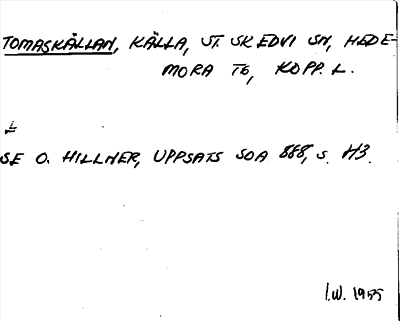 TOMASKÄLLAN, KÄLLA, ST. SKEDVI SN, HEDE-
MORA TG, KOPP. L.
SE O. HILLNER, UPPSATS SOA 868, S. 43.
I.W. 1955